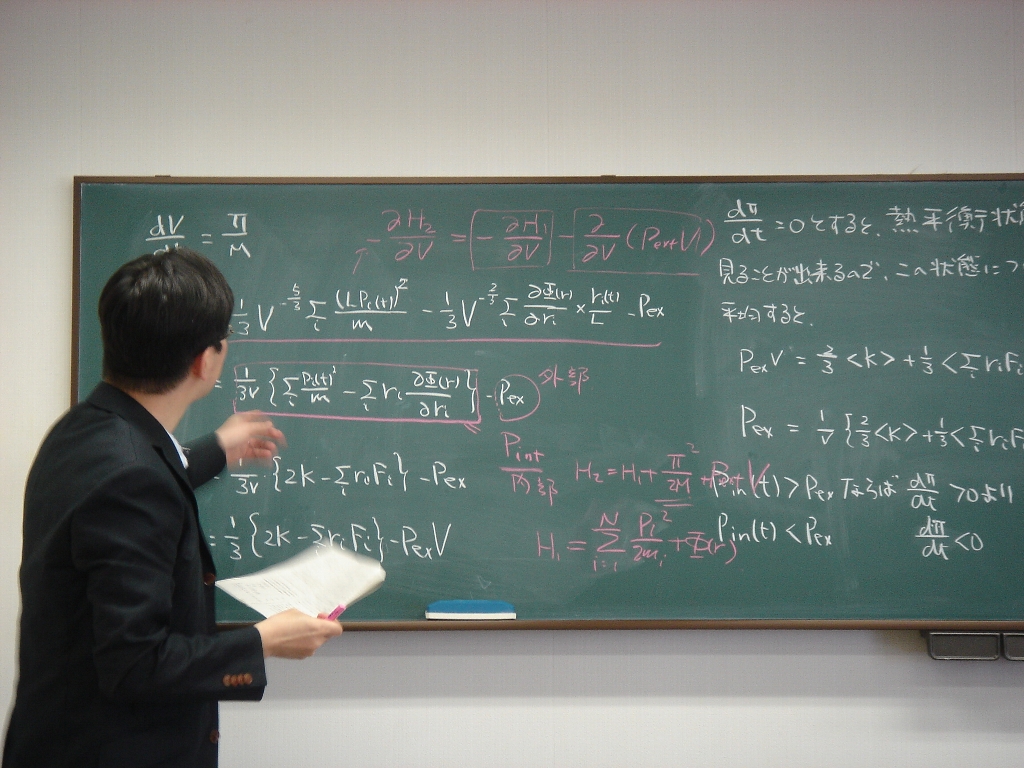 dV/dt = π/M
-∂H₂/∂V = -∂H₁/∂V - ∂/∂V (PextV)
1/3 V^(-5/3) Σᵢ (LPᵢ(t))²/m - 1/3 V^(-2/3) Σᵢ ∂Φ(r)/∂rᵢ × rᵢ(t)/L - Pex
= 1/3V { Σᵢ Pᵢ(t)²/m - Σᵢ rᵢ ∂Φ(r)/∂rᵢ } - Pex 外部
Pint
内部
1/3V {2K - Σᵢ rᵢFᵢ} - Pex
= 1/3 {2K - Σᵢ rᵢFᵢ} - PexV
H₂ = H₁ + π²/2M + PextV
H₁ = Σ_{i=1}^{N} Pᵢ²/2mᵢ + Φ(r)
dπ/dt = 0とすると、熱平衡状態
見ることが出来るので、この状態につ
平均すると、
PexV = 2/3 <K> + 1/3 <Σ rᵢF
Pex = 1/V {2/3 <K> + 1/3 <Σ rᵢF
Pin(t) > Pex ならば dπ/dt > 0より
Pin(t) < Pex dπ/dt < 0